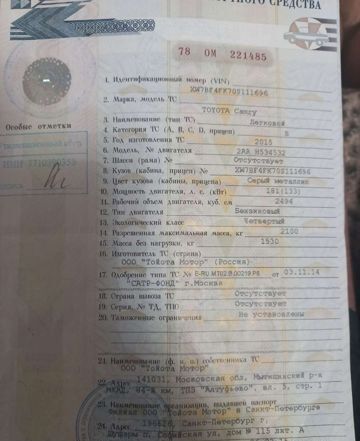 ТНОГО СРЕДСТВА
78 ОМ 221485
1. Идентификационный номер (VIN) XW7BF4FK70S111696
2. Марка, модель ТС TOYOTA Camry
3. Наименование (тип ТС) Легковой
Особые отметки
4. Категория ТС (А, В, С, D, прицеп) B
5. Год изготовления ТС 2015
6. Модель, № двигателя 2AR H536532
7. Шасси (рама) № Отсутствует
8. Кузов (кабина, прицеп) № XW7BF4FK70S111696
9. Цвет кузова (кабины, прицепа) Серый металлик
10. Мощность двигателя, л. с. (кВт) 181(133)
11. Рабочий объем двигателя, куб. см 2494
12. Тип двигателя Бензиновый
13. Экологический класс Четвертый
14. Разрешенная максимальная масса, кг 2100
15. Масса без нагрузки, кг 1530
16. Изготовитель ТС (страна)
ООО "Тойота Мотор" (Россия)
17. Одобрение типа ТС № от 03.11.14
"САТР-ФОНД" г.Москва
18. Страна вывоза ТС Отсутствует
19. Серия, № ТД, ТПО Отсутствует
20. Таможенные ограничения Не установлены
21. Наименование (ф. и. о.) собственника ТС
ООО "Тойота Мотор"
22. Адрес 141031, Московская обл, Мытищинский р-н
МКАД, 84-й км, ТПЗ "Алтуфьево", вл. 5, стр. 1
23. Наименование организации, выдавшей паспорт
Филиал ООО "Тойота Мотор" в Санкт-Петербурге
24. Адрес 196626, Санкт-Петербург г,
Шушары п, Софийская ул, дом № 115 лит. А